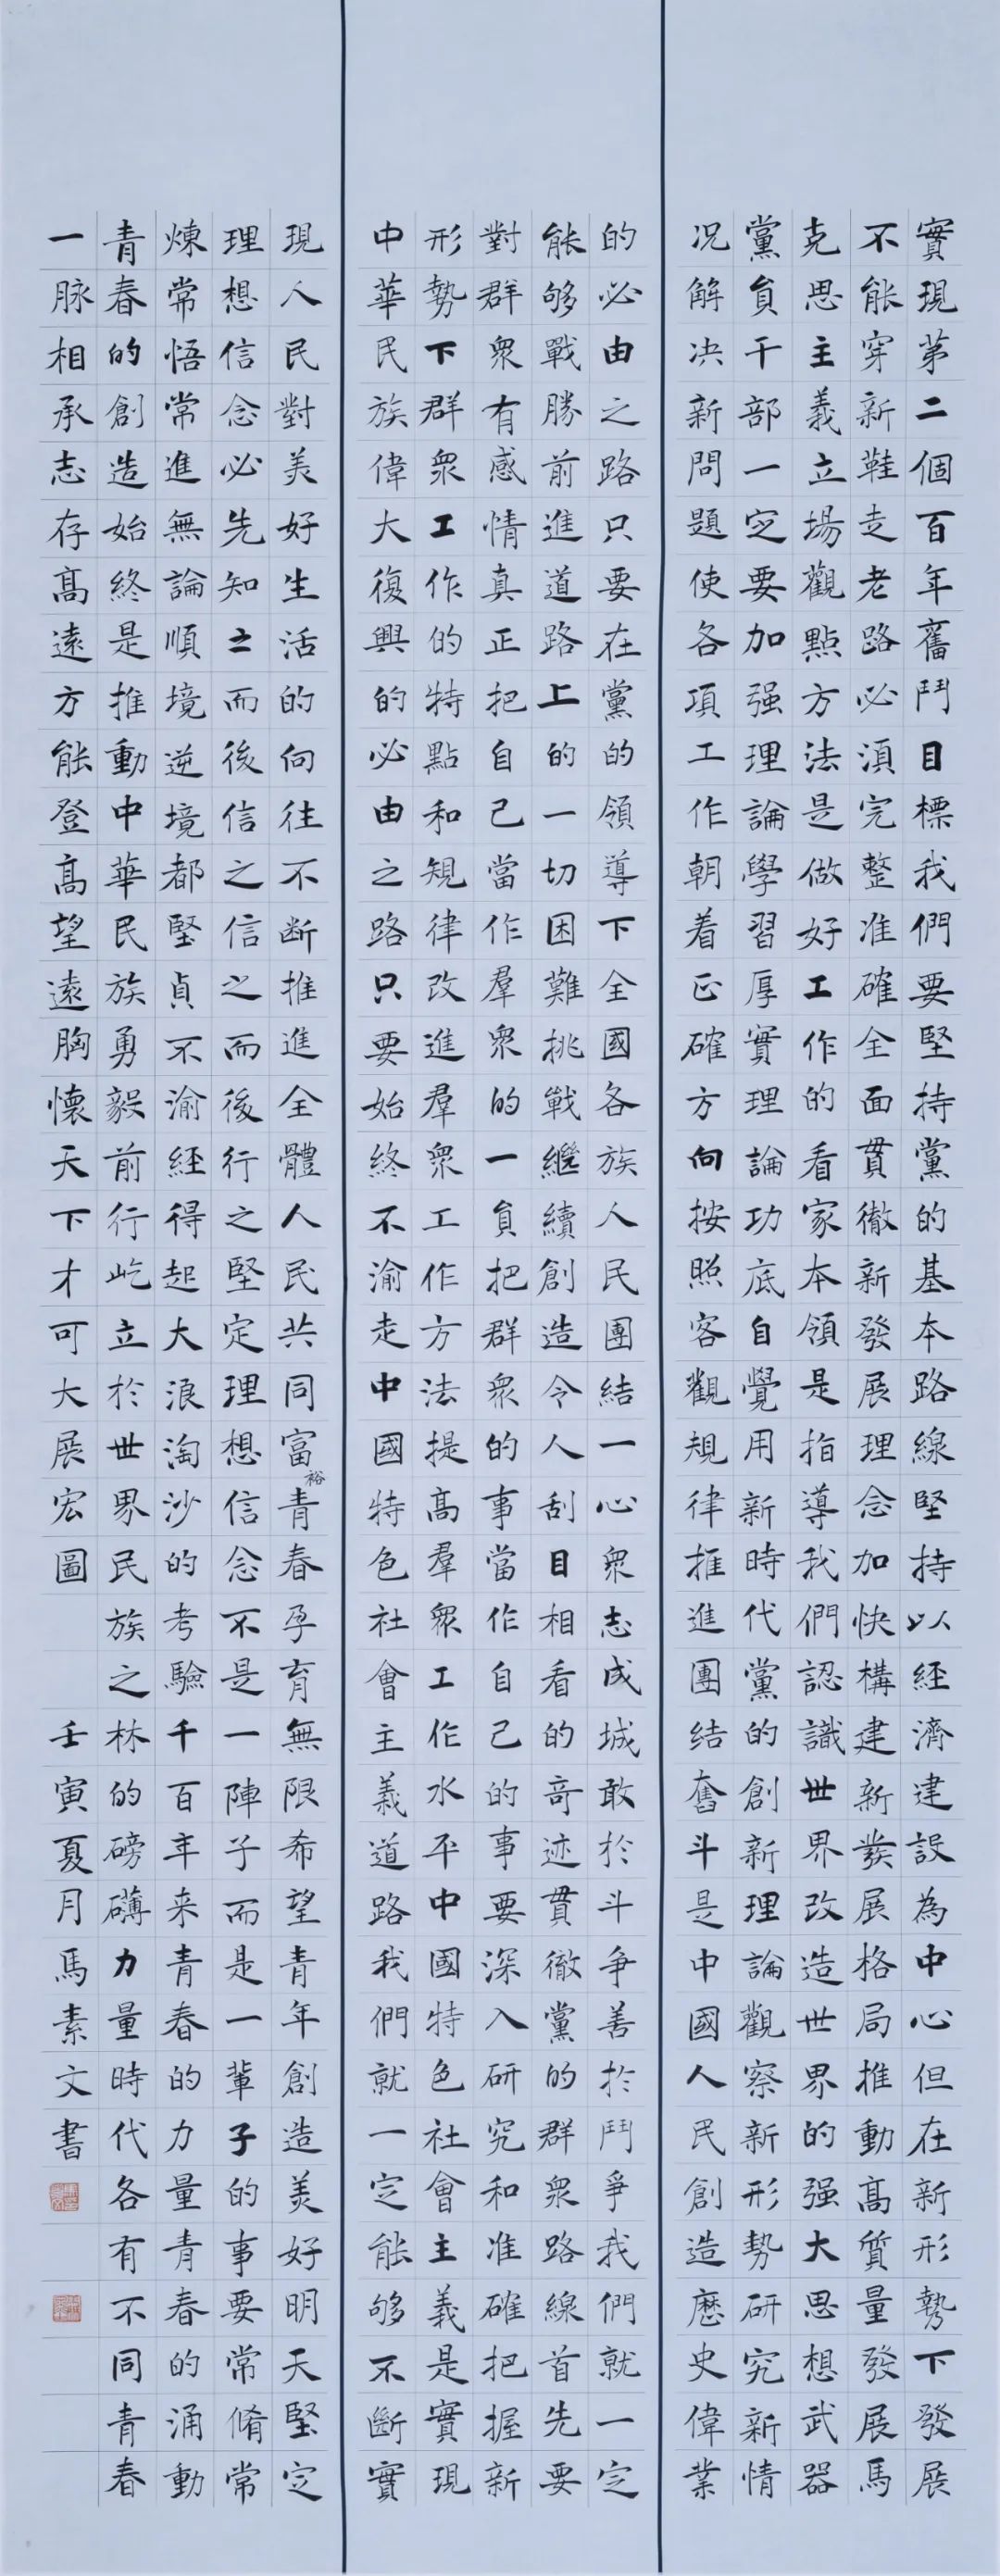 實現第二個百年奮鬥目標我們要堅持黨的基本路線堅持以經濟建設為中心但在新形勢下發展
不能穿新鞋走老路必須完整准確全面貫徹新發展理念加快構建新發展格局推動高質量發展馬
克思主義立場觀點方法是做好工作的看家本領是指導我們認識世界改造世界的强大思想武器
黨員干部一定要加强理論學習厚實理論功底自覺用新時代黨的創新理論觀察新形勢研究新情
况解决新問題使各項工作朝着正確方向按照客觀規律推進團结奮斗是中國人民創造歷史偉業
的必由之路只要在黨的領導下全國各族人民團結一心衆志成城敢於斗爭善於鬥爭我們就一定
能够戰勝前進道路上的一切困難挑戰繼續創造令人刮目相看的奇迹貫徹黨的群衆路線首先要
對群衆有感情真正把自己當作羣衆的一員把群衆的事當作自己的事要深入研究和准確把握新
形勢下群衆工作的特點和規律改進羣衆工作方法提高羣衆工作水平中國特色社會主義是實現
中華民族偉大復興的必由之路只要始終不渝走中國特色社會主義道路我們就一定能够不斷實
現人民對美好生活的向往不断推進全體人民共同富裕青春孕育無限希望青年創造美好明天堅定
理想信念必先知之而後信之信之而後行之堅定理想信念不是一陣子而是一輩子的事要常脩常
煉常悟常進無論順境逆境都堅貞不渝経得起大浪淘沙的考驗千百年来青春的力量青春的涌動
青春的創造始終是推動中華民族勇毅前行屹立於世界民族之林的磅礴力量時代各有不同青春
一脉相承志存高遠方能登高望遠胸懷天下才可大展宏圖
壬寅夏月馬素文書